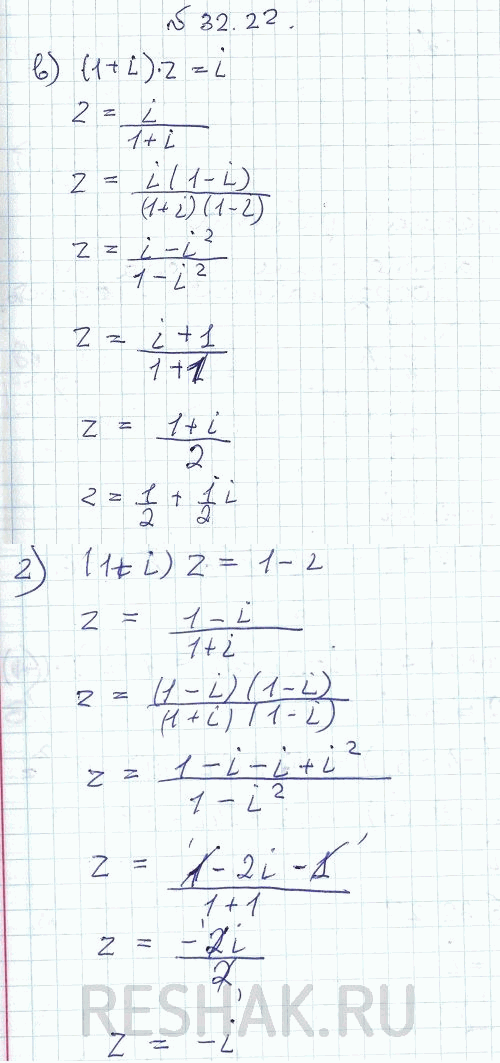 № 32.22.
в) (1+i)·z = i
z = i/(1+i)
z = i(1-i)/((1+i)(1-i))
z = (i-i²)/(1-i²)
z = (i+1)/(1+1)
z = (1+i)/2
z = 1/2 + 1/2 i
г) (1+i) z = 1-i
z = (1-i)/(1+i)
z = (1-i)(1-i)/((1+i)(1-i))
z = (1-i-i+i²)/(1-i²)
z = (1-2i-1)/(1+1)
z = -2i/2
z = -i
RESHAK.RU